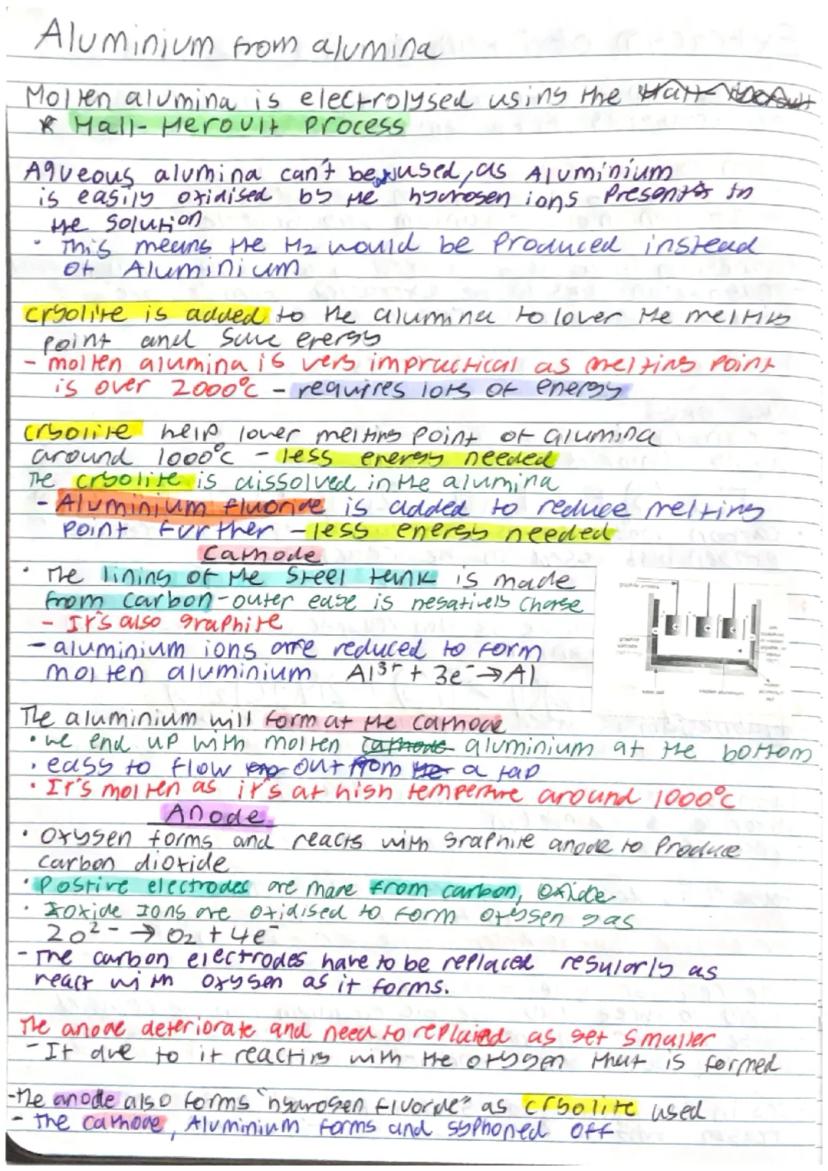 Aluminium from alumina
Molten alumina is electrolysed using the
* Hall-Heroult Process
Aqueous alumina can't be used, as Aluminium
is easily oxidised by the hydrogen ions Present in
the solution
• This means the H₂ would be Produced instead
of Aluminium
cryolite is added to the alumina to lover the melting
point and save energy
- molten alumina is very impractical as melting Point
is over 2000°c - requires lots of energy
cryolite help lover melting point of alumina
around 1000°c - less energy needed
The cryolite is dissolved in the alumina
- Aluminium fluoride is added to reduce melting
point further - less energy needed
Cathode
• The lining of the Steel tank is made
from carbon - outer case is negatively charge
- It's also graphite
- aluminium ions are reduced to form
molten aluminium Al³⁺ + 3e⁻ → Al
The aluminium will form at the Cathode
• we end up with molten cathode aluminium at the bottom
• easy to flow out from a tap
• It's molten as it's at high temperture around 1000°c
Anode
• Oxygen forms and reacts with graphite anode to Produce
carbon dioxide
• Postive electrodes are mare from carbon, Oxide
• Oxide Ions are oxidised to form oxygen gas
2O²⁻ → O₂ + 4e⁻
- The carbon electrodes have to be replaced regularly as
react with oxygen as it forms.
The anode deteriorate and need to replaced as get smaller
- It due to it reacting with the oxygen that is formed
- the anode also forms "hydrogen fluoride" as cryolite used
- the cathode, Aluminium forms and syphoned off